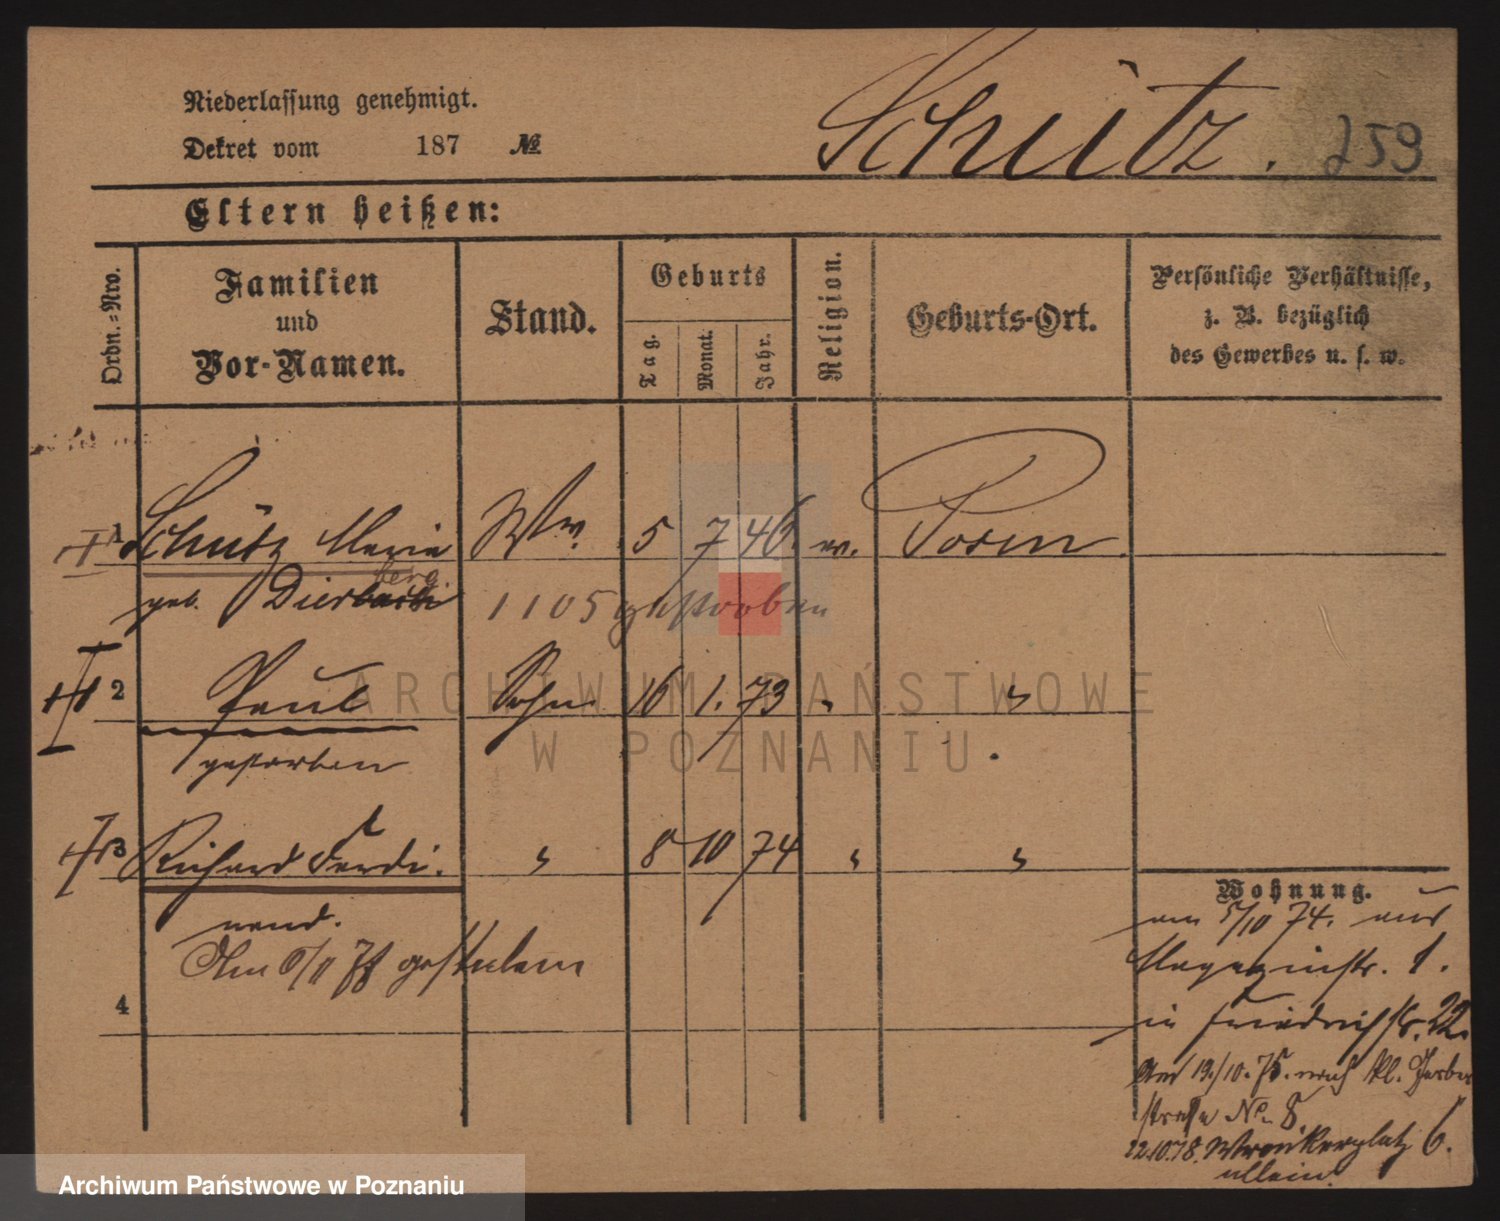 Niederlassung genehmigt.
Schütz. 259
Dekret vom 187 №
Eltern heißen:
Ordn.-Nro.
Familien und Vor-Namen.
Stand.
Geburts
Tag.
Monat.
Jahr.
Religion.
Geburts-Ort.
Persönliche Verhältnisse,
z. B. bezüglich
des Gewerbes u. s. w.
1 Schütz Maria Ww. 5 7 46 ev. Posen
berg
geb. Dier 1105 gestorben
2 Paul Sohn 16 1. 73 " "
gestorben
3 Richard Ferdi- " 8 10 74 " "
nand.
Am 6/11 gestorben
4
Wohnung.
am 5/10 74. aus
Magazinstr. 1.
in Friedrichstr. 22.
Am 19./10. 75. nach kl. Gerber
straße No. 8
22.10.78. Wronkerplatz 6.
allein.
ARCHIWUM PAŃSTWOWE
W POZNANIU
Archiwum Państwowe w Poznaniu